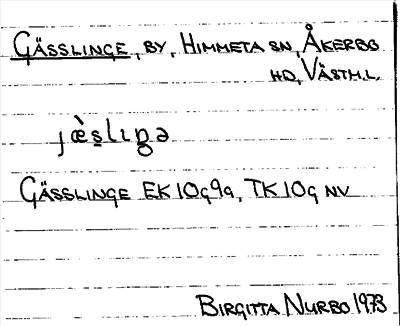 GÄSSLINGE, BY, HIMMETA SN, ÅKERBO
HD, VÄSTM.L.
jæ̀s̱lıŋə
GÄSSLINGE EK 10g9a, TK 10g NV
BIRGITTA NURBO 1973